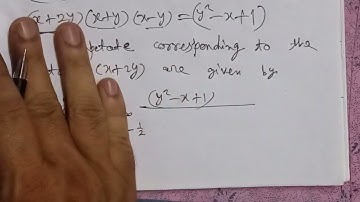 (x+2y) (x+y) (x-y) = (y²-x+1)
corresponding to the
(x+2y) are given by
(y²-x+1)
- 1/2